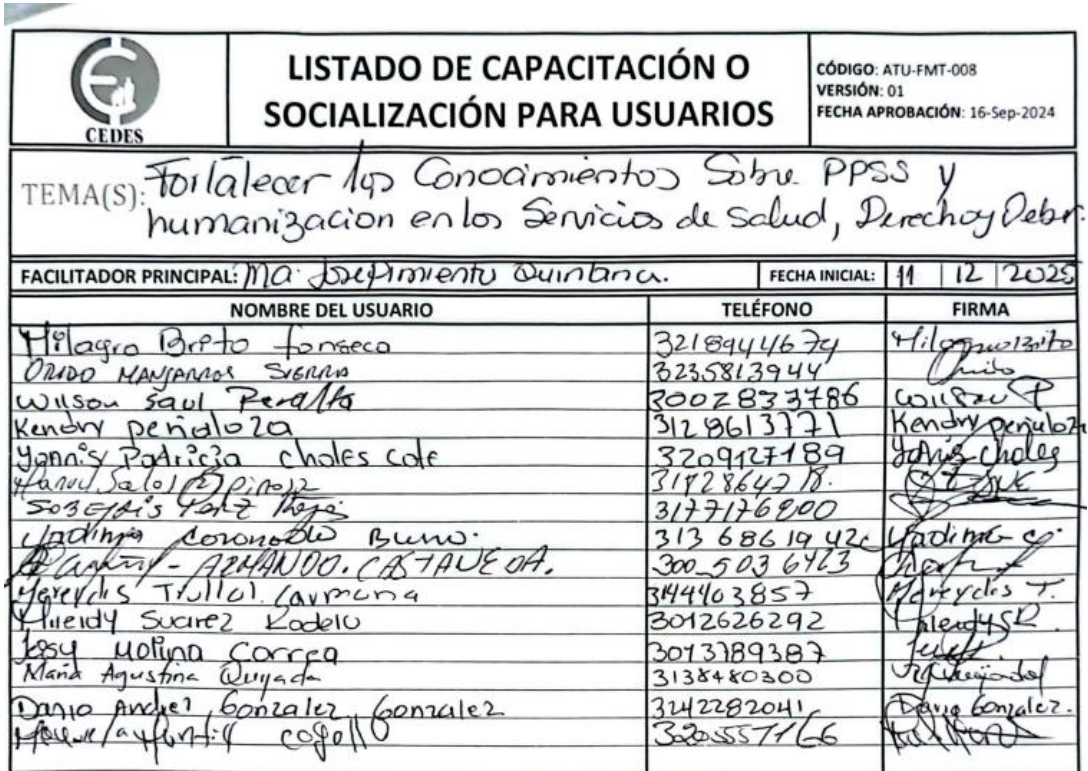 CEDES
LISTADO DE CAPACITACIÓN O
SOCIALIZACIÓN PARA USUARIOS
CÓDIGO: ATU-FMT-008
VERSIÓN: 01
FECHA APROBACIÓN: 16-Sep-2024
TEMA(S): Fortalecer los Conocimientos Sobre PPSS y
humanizacion en los Servicios de Salud, Derecho y Deber.
FACILITADOR PRINCIPAL: Ma. Jose Pimiento Quintana. FECHA INICIAL: 11 | 12 | 2025
NOMBRE DEL USUARIO TELÉFONO FIRMA
Milagro Brito fonseca 3218944674 Milagro Brito
MANJARRES SIERRA 3235813944
Wilson Saul Peralta 3002833786 Wilson P
Kendry peñaloza 3128613771 Kendry peñaloza
Yannis Patricia choles cote 3209127189 Yanis choles
3177176900
Yadima Coronado Bueno. 313 6861942 Yadima c.
ARMANDO. CASTAÑEDA. 300 503 6423
Mereydis Trullol Carmona 3144403857 Mereydis T.
Suarez Rodelo 3012626292
Jessy Molina Correa 3013789387
Maria Agustina Quijada 3138480300
Dario Andres Gonzalez Gonzalez 3242282041 Dario Gonzalez.
cogollo 3205571166